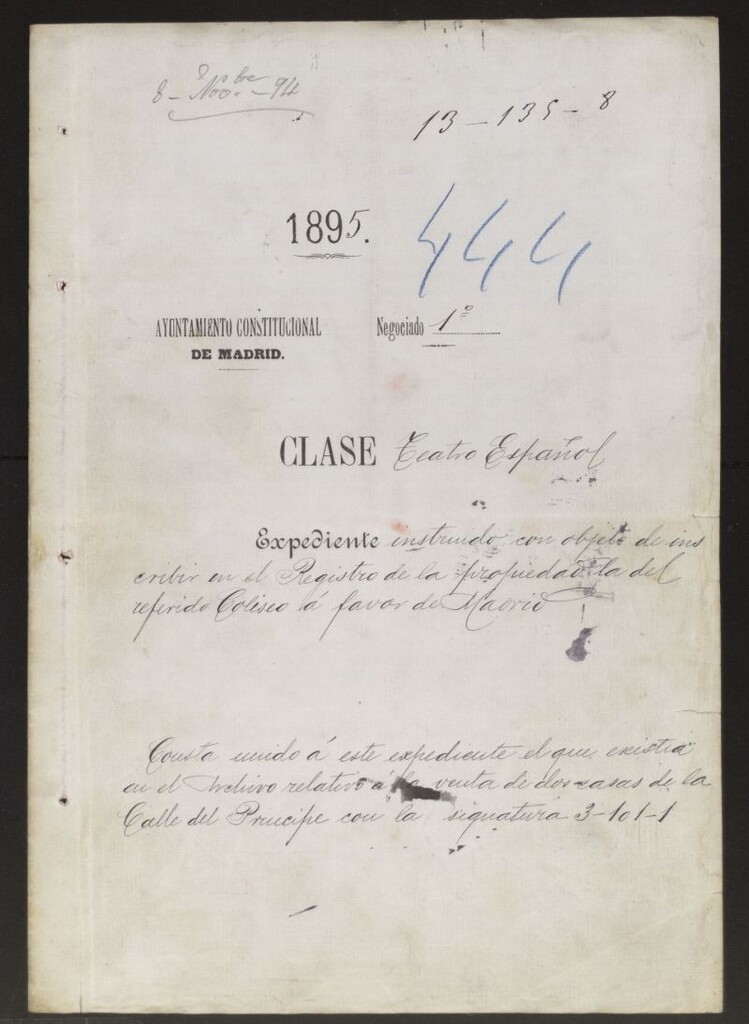 8 - Novbre - 94
13 - 135 - 8
1895.
444
AYUNTAMIENTO CONSTITUCIONAL
DE MADRID.
Negociado 1º
CLASE Teatro Español
Expediente instruido con objeto de ins
cribir en el Registro de la propiedad la del
referido Coliseo á favor de Madrid
Consta unido á este expediente el que existia
en el Archivo relativo á la venta de dos casas de la
Calle del Principe con la signatura 3-101-1